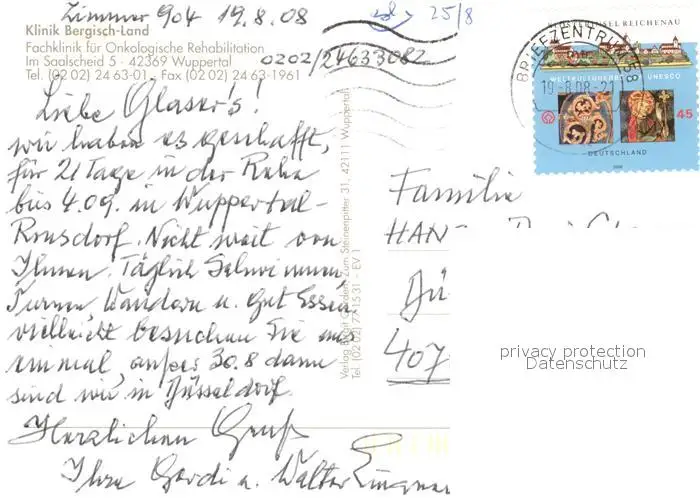 Zimmer 904 19.8.08
25/8
Klinik Bergisch-Land
Fachklinik für Onkologische Rehabilitation
Im Saalscheid 5 · 42369 Wuppertal
Tel. (02 02) 24 63-01 · Fax (02 02) 24 63-1961
0202/24633082
Liebe Glaser's!
wir haben es geschafft,
für 21 Tage in der Reha
bis 4.09. in Wuppertal-
Ronsdorf. Nicht weit von
Ihnen. Täglich Schwimmen
Turnen Wandern u. Gut Essen
vielleicht besuchen Sie uns
einmal, außer 30.8 dann
sind wir in Düsseldorf.
Herzlichen Gruß
Ihre Gerdi u. Walter
Verlag Birgit Zum Steinenpitter 31, 42111 Wuppertal
Tel. (02 02) 77 15 31 - EV 1
KLOSTERINSEL REICHENAU
WELTKULTURERBE UNESCO
45
DEUTSCHLAND
2008
BRIEFZENTRUM 58
19.-8.08-21
Familie
HAN
Dü
407
privacy protection
Datenschutz